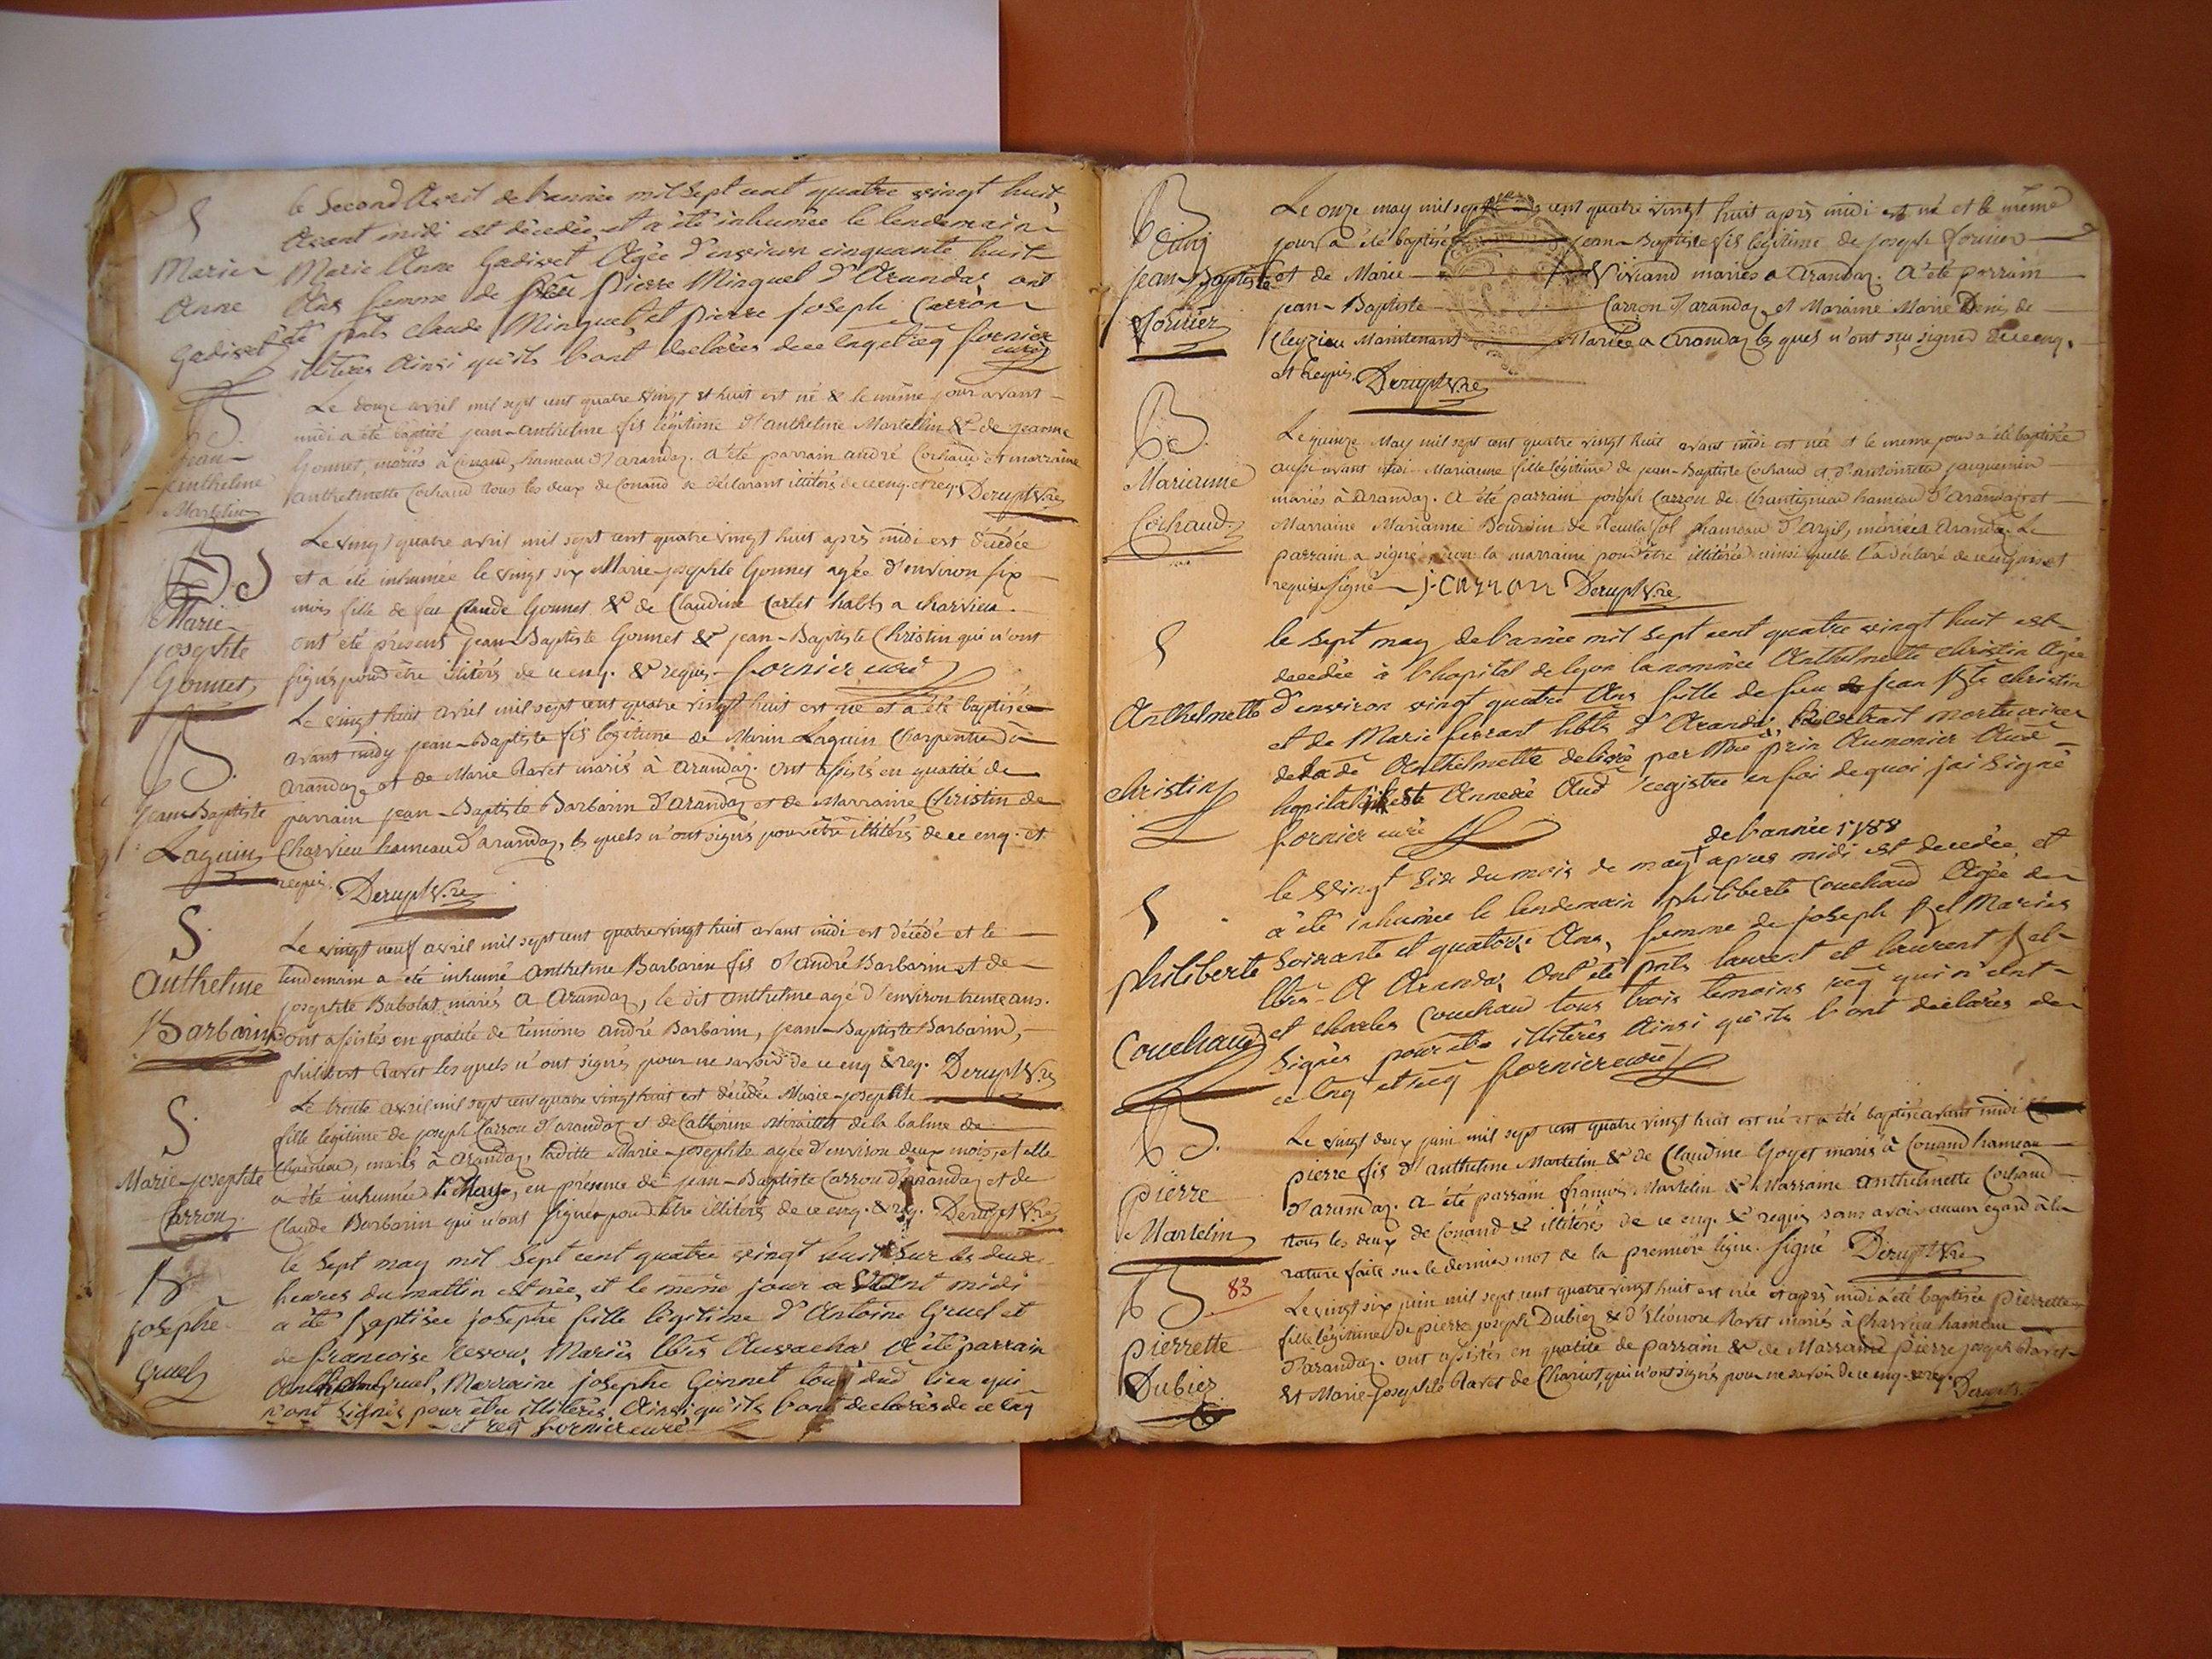 S
Marie
Anne
Gadiset
le Second Avril de l'année mil sept cent quatre vingt huit
Avant midi est décedée et a été inhumée le lendemain
Marie Anne Gadiset Agée d'environ cinquante huit
Ans femme de Pierre Minguet d'Arandas ont
été pnts Claude Minguet et Pierre Joseph Carron
illiteres Ainsi qu'ils l'ont declarés de ce enq et req fornier
curé
B.
Jean
Anthelme
Martelin
Le douze avril mil sept cent quatre vingt et huit est né & le même jour avant
midi a été baptisé jean-anthelme fils légitime d'anthelme Martelin & de jeanne
Gonnet, mariés à Conand, hameau d'arandaz. a été parrain andré Cochaud et marraine
anthelmette Cochaud tous les deux de Conand se déclarant illitérés de ce enq. et req. Derupt V.re
S
Marie
josephte
Gonnet
Le vingt quatre avril mil sept cent quatre vingt huit après midi est décedée
et a été inhumée le vingt six Marie-josephte Gonnet agée d'environ six
mois fille de feu Claude Gonnet & de Claudine Cartet habts a charvieu.
ont été présens jean-Baptiste Gonnet & jean-Baptiste Christin qui n'ont
signés pour être illitérés de ce enq. & requis fornier curé
B.
Jean Baptiste
Laguin
Le vingt huit avril mil sept cent quatre vingt huit est né et a été baptisé
avant midy jean-Baptiste fils légitime de Marin Laguin Charpentier à
arandaz et de Marie Ravet mariés à arandaz. ont assistés en qualité de
parrain jean-Baptiste Barbarin d'arandaz et de Marraine Christin de
Charvieu hameau d'arandaz, les quels n'ont signés pour être illitérés de ce enq. et
requis. Derupt V.re
S.
Anthelme
Barbarin
Le vingt neuf avril mil sept cent quatre vingt huit avant midi est décédé et le
lendemain a été inhumé anthelme Barbarin fils d'andré Barbarin et de
josephte Babolat mariés a Arandaz, le dit anthelme agé d'environ trente ans.
ont assistés en qualité de témoins andré Barbarin, jean-Baptiste Barbarin,
philibert Ravet lesquels n'ont signés pour ne savoir de ce enq & req. Derupt V.re
S.
Marie-josephte
Carron
Le trente avril mil sept cent quatre vingt huit est décédée Marie-josephte
fille légitime de joseph Carron d'arandaz et de Catherine Miraillet de la balme de
mariés à arandaz, ladite Marie-josephte agée d'environ deux mois, et elle
a été inhumée le May, en présence de jean-Baptiste Carron d'arandaz et de
Claude Barbarin qui n'ont signer pour être illitérés de ce enq. & req. Derupt V.re
B
josephe
Gruel
le Sept may mil Sept cent quatre vingt huit Sur les deux
heures du mattin est née, et le même jour avant midi
a été baptisée josephe fille légitime d'Antoine Gruel et
de francoise Mariés A été parrain
Anthelme Gruel, Marraine josephe Gonnet tous dud lieu qui
n'ont signés pour etre illitérés Ainsi qu'ils l'ont declarés de ce enq
et req fornier curé
B
Jean-Baptiste
fornier
Le onze may mil sept cent quatre vingt huit après midi est né et le même
jour a été baptisé jean-Baptiste fils légitime de joseph fornier
et de Marie Viviand mariés a arandaz. A été parrain
jean-Baptiste Carron d'arandaz et Maraine Marie Denis de
Cleyzieu Maintenant Mariée a arandaz les quels n'ont sçu signer de ce enq.
et requis. Derupt V.re
B.
Marianne
Cochaud
Le quinze May mil sept cent quatre vingt huit avant midi est née et le même jour a été baptisée
aussi avant midi Marianne fille légitime de jean-Baptiste Cochaud et d'antoinette jacquemin
mariés à Arandaz. A été parrain joseph Carron de hameau d'arandaz et
Marraine Marianne Bourdin de hameau d'argis, mariée a Arandaz. Le
parrain a signé non la marraine pour être illitérée ainsi quelle l'a déclaré de ce enquis et
requise signé J. Carron Derupt V.re
S
Anthelmette
christin
le Sept may de l'année mil sept cent quatre vingt huit est
decedée à l'hopital de lyon la nommée Anthelmette christin Agée
d'environ vingt quatre Ans fille de feu jean Bte christin
et de Marie ferrant hbts d'Arandas, l'extrait mortuaire
de lade Anthelmette delivré par Mre prin Aumonier Aud
hopital reste Annexé Aud registre en foi de quoi jai Signé
fornier curé
S
philiberte
Couchaud
de l'année 1788
le vingt Six du mois de may après midi est decedée et
à été inhumée le lendemain philiberte Couchaud Agée de
Soixante et quatorze Ans, femme de joseph Bel Mariés
A Arandas Ont été pnts laurent et laurent Bel
et charles Couchaud tous trois temoins req qui n'ont
Signés pour etre illiterés Ainsi qu'ils l'ont declarés de
ce Enq et req fornier curé
B.
pierre
Martelin
Le vingt deux juin mil sept cent quatre vingt huit est né et a été baptisé avant midi
pierre fils d'anthelme Martelin & de Claudine Goyet mariés à Conand hameau
d'arandaz. a été parrain françois Martelin & Marraine anthelmette Cochaud
tous les deux de Conand & illitérés de ce enq. & requis sans avoir aucun egard à la
rature faite sur le dernier mot de la première ligne. signé Derupt V.re
B 83
pierrette
Dubiez
Le vingt six juin mil sept cent quatre vingt huit est née et après midi a été baptisée pierrette
fille légitime de pierre joseph Dubiez & d'Eléonore Ravet mariés à Charvieu hameau
d'arandaz. ont assistés en qualité de parrain & de Marraine pierre joseph Ravet
et Marie-josephte Ravet de Charvieu, qui n'ont signés pour ne savoir de ce enq. & req. Derupt V.